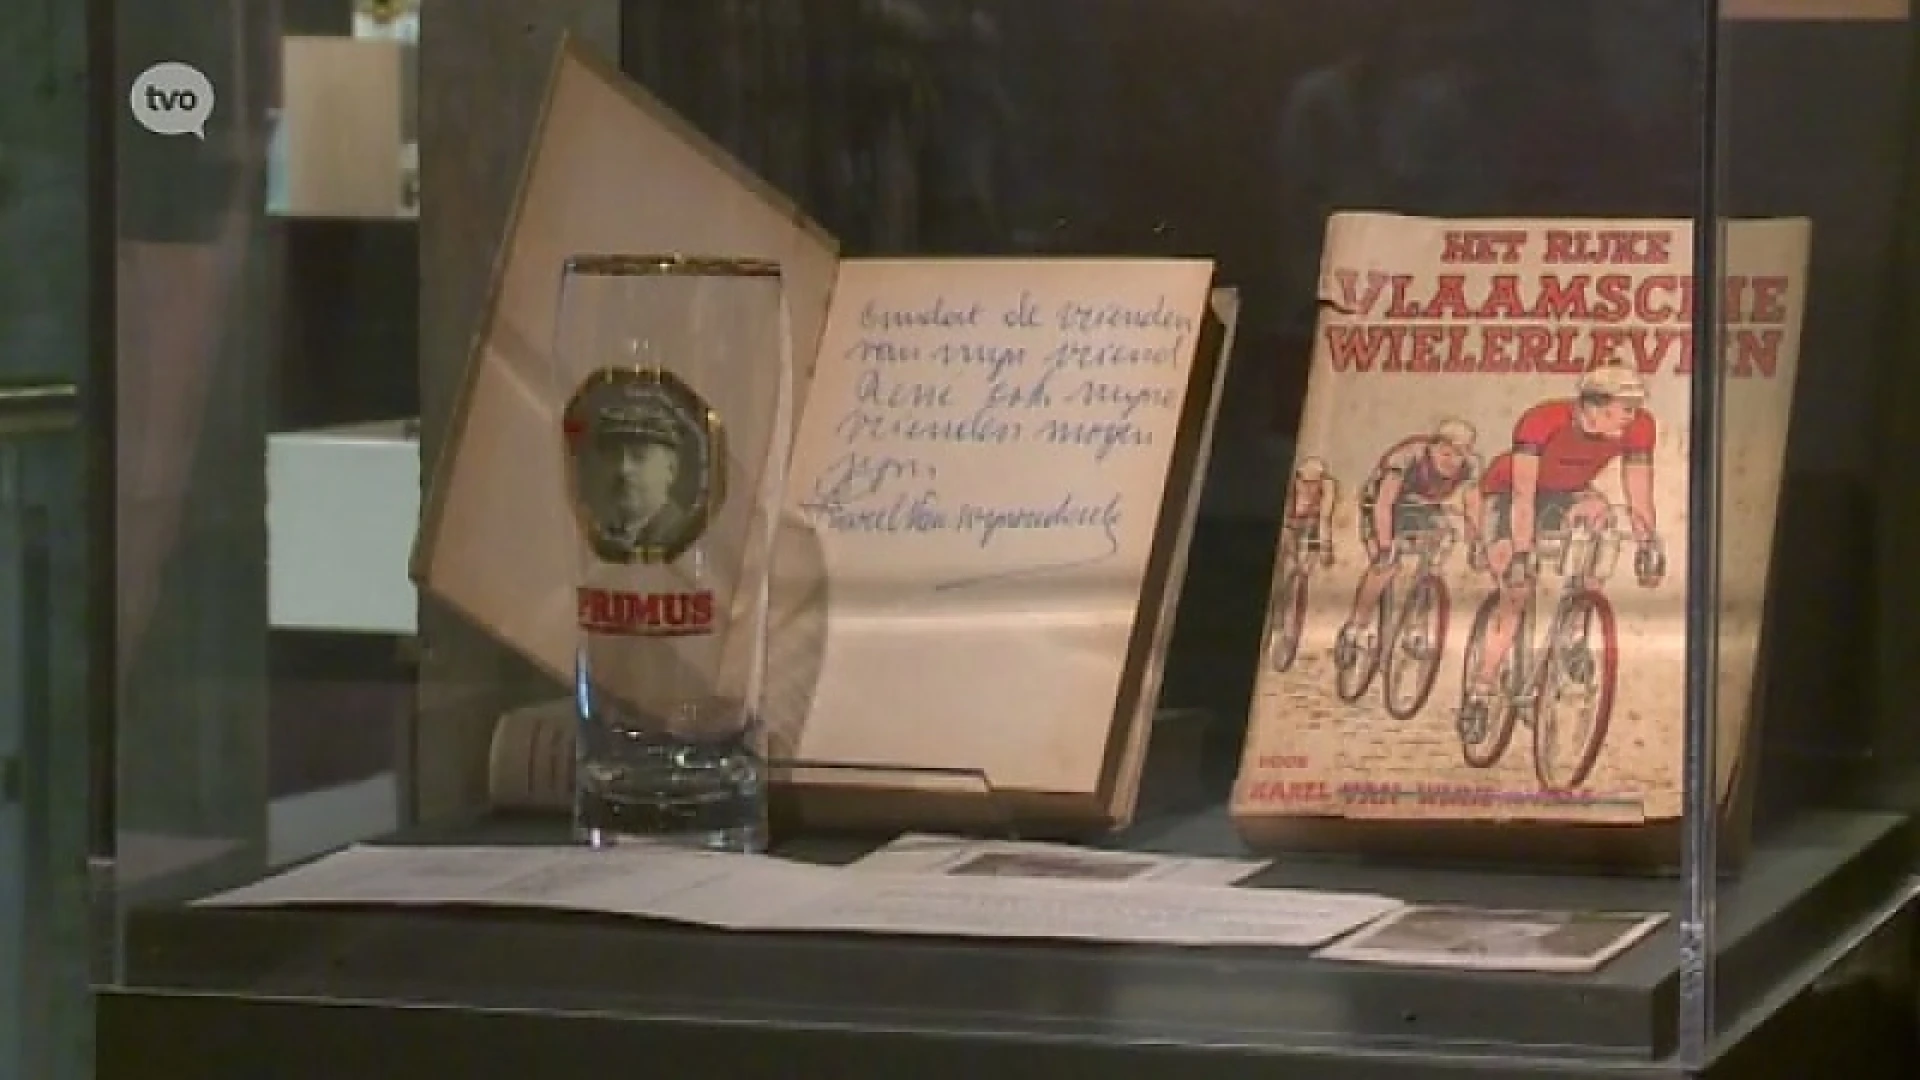 tvo
Omdat de vrienden
van mijn vriend
René ook mijne
vrienden mogen
zijn.
Karel Van Wijnendaele
PRIMUS
HET RIJKE
VLAAMSCHE
WIELERLEVEN
DOOR
KAREL VAN WIJNENDAELE